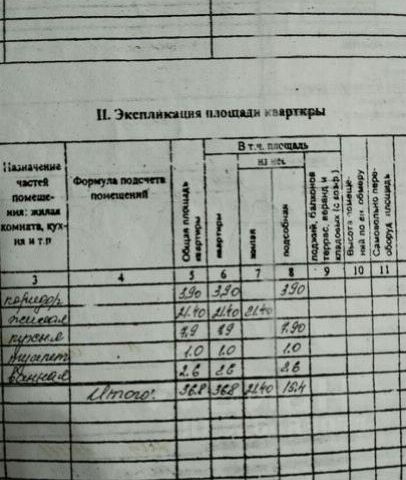 II. Экспликация площади квартиры
Назначение частей помещения: жилая комната, кухня и т.р
Формула подсчета помещений
Общая площадь квартиры
В т.ч. площадь
квартиры
из нее
жилая
подсобная
лоджий, балконов террас, веранд и кладовых (с коэф.)
Высота помещений по вн. обмеру
Самовольно переоборуд. площадь
3 4 5 6 7 8 9 10 11
коридор 3,90 3,90 3,90
жилая 21.40 21.40 21.40
кухня 7.9 7.9 7.90
туалет 1.0 1.0 1.0
ванная 2.6 2.6 2.6
Итого: 36.8 36.8 21.40 15.4